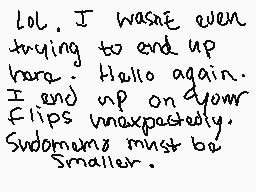 Lol. I wasnt even
trying to end up
here. Hello again.
I end up on your
flips unexpectedly.
Sudomemo must be
smaller.